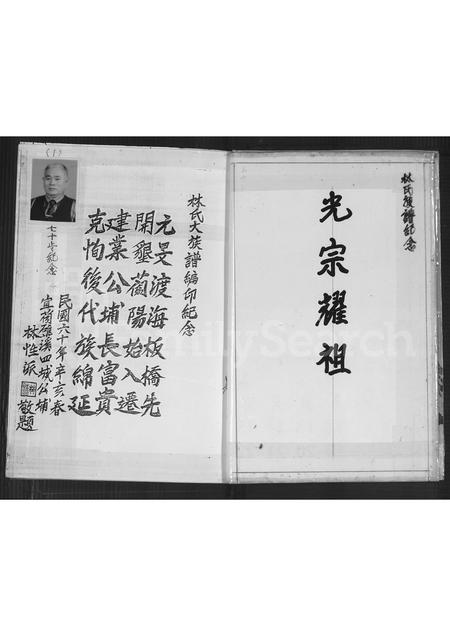 林氏復譜紀念
光宗耀祖
林氏大族譜編印紀念
元旻渡海板橋先
開墾蘭陽始入遷
建業公埔長富貴
克恂後代族綿延
民國六十年辛亥春
宜蘭礁溪四城公埔
林性派 敬題
(1)
七十歲紀念
FamilySearch